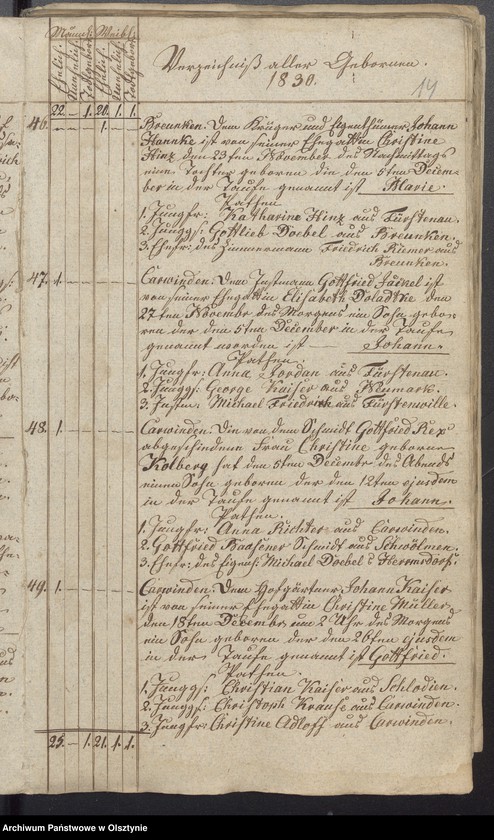 Männl: Weibl:
Ehelich. Unehelich. Todtgeborn. Ehelich. Unehelich. Todtgeborn.
Verzeichniß aller Gebornen.
1830.
14
22. — 1. 20. 1. 1.
46. — — 1. Breunken: Dem Krüger und Eigenthümer Johann
Hannke ist von seiner Ehegattin Christine
Hinz den 23ten November des Nachmittags
eine Tochter geboren die den 5ten Decem-
ber in der Taufe genannt ist Marie.
Pathen
1. Jungfr: Katharine Hinz aus Fürstenau.
2. Jungg: Gottlieb Doebel aus Breunken.
3. Ehefr: des Zimmermann Friedrich Riemer aus
Breunken.
47. 1. Carwinden: Dem Instmann Gottfried ist
von seiner Ehegattin Elisabeth Doladtke den
27ten November des Morgens ein Sohn gebo-
ren der den 5ten December in der Taufe
genannt worden ist — Johann.
Pathen.
1. Jungfr: Anna Jordan aus Fürstenau.
2. Jungg: George Kaiser aus Neumark.
3. Instm: Michael Friedrich aus Fürstenwille.
48. 1. Carwinden: Die von dem Schmidt Gottfried
abgeschiedene Frau Christine geborne
Kolberg hat den 5ten December des Abends
einen Sohn geboren der den 12ten ejusdem
in der Taufe genannt ist Johann.
Pathen.
1. Jungfr: Anna Richter aus Carwinden.
2. Gottfried Schmidt aus Schwölmen.
3. Ehefr: des Eigenth: Michael Doebel a Hermsdorf.
49. 1. Carwinden: Dem Hofgärtner Johann Kaiser
ist von seiner Ehegattin Christine Müller
den 18ten December um 2 Uhr des Morgens
ein Sohn geboren der den 26ten ejusdem
in der Taufe genannt ist Gottfried.
Pathen.
1. Jungg: Christian Kaiser aus Schlodien.
2. Jungg: Christoph Krause aus Carwinden.
3. Jungfr: Christine Adloff aus Carwinden.
25. — 1. 21. 1. 1.
Archiwum Państwowe w Olsztynie